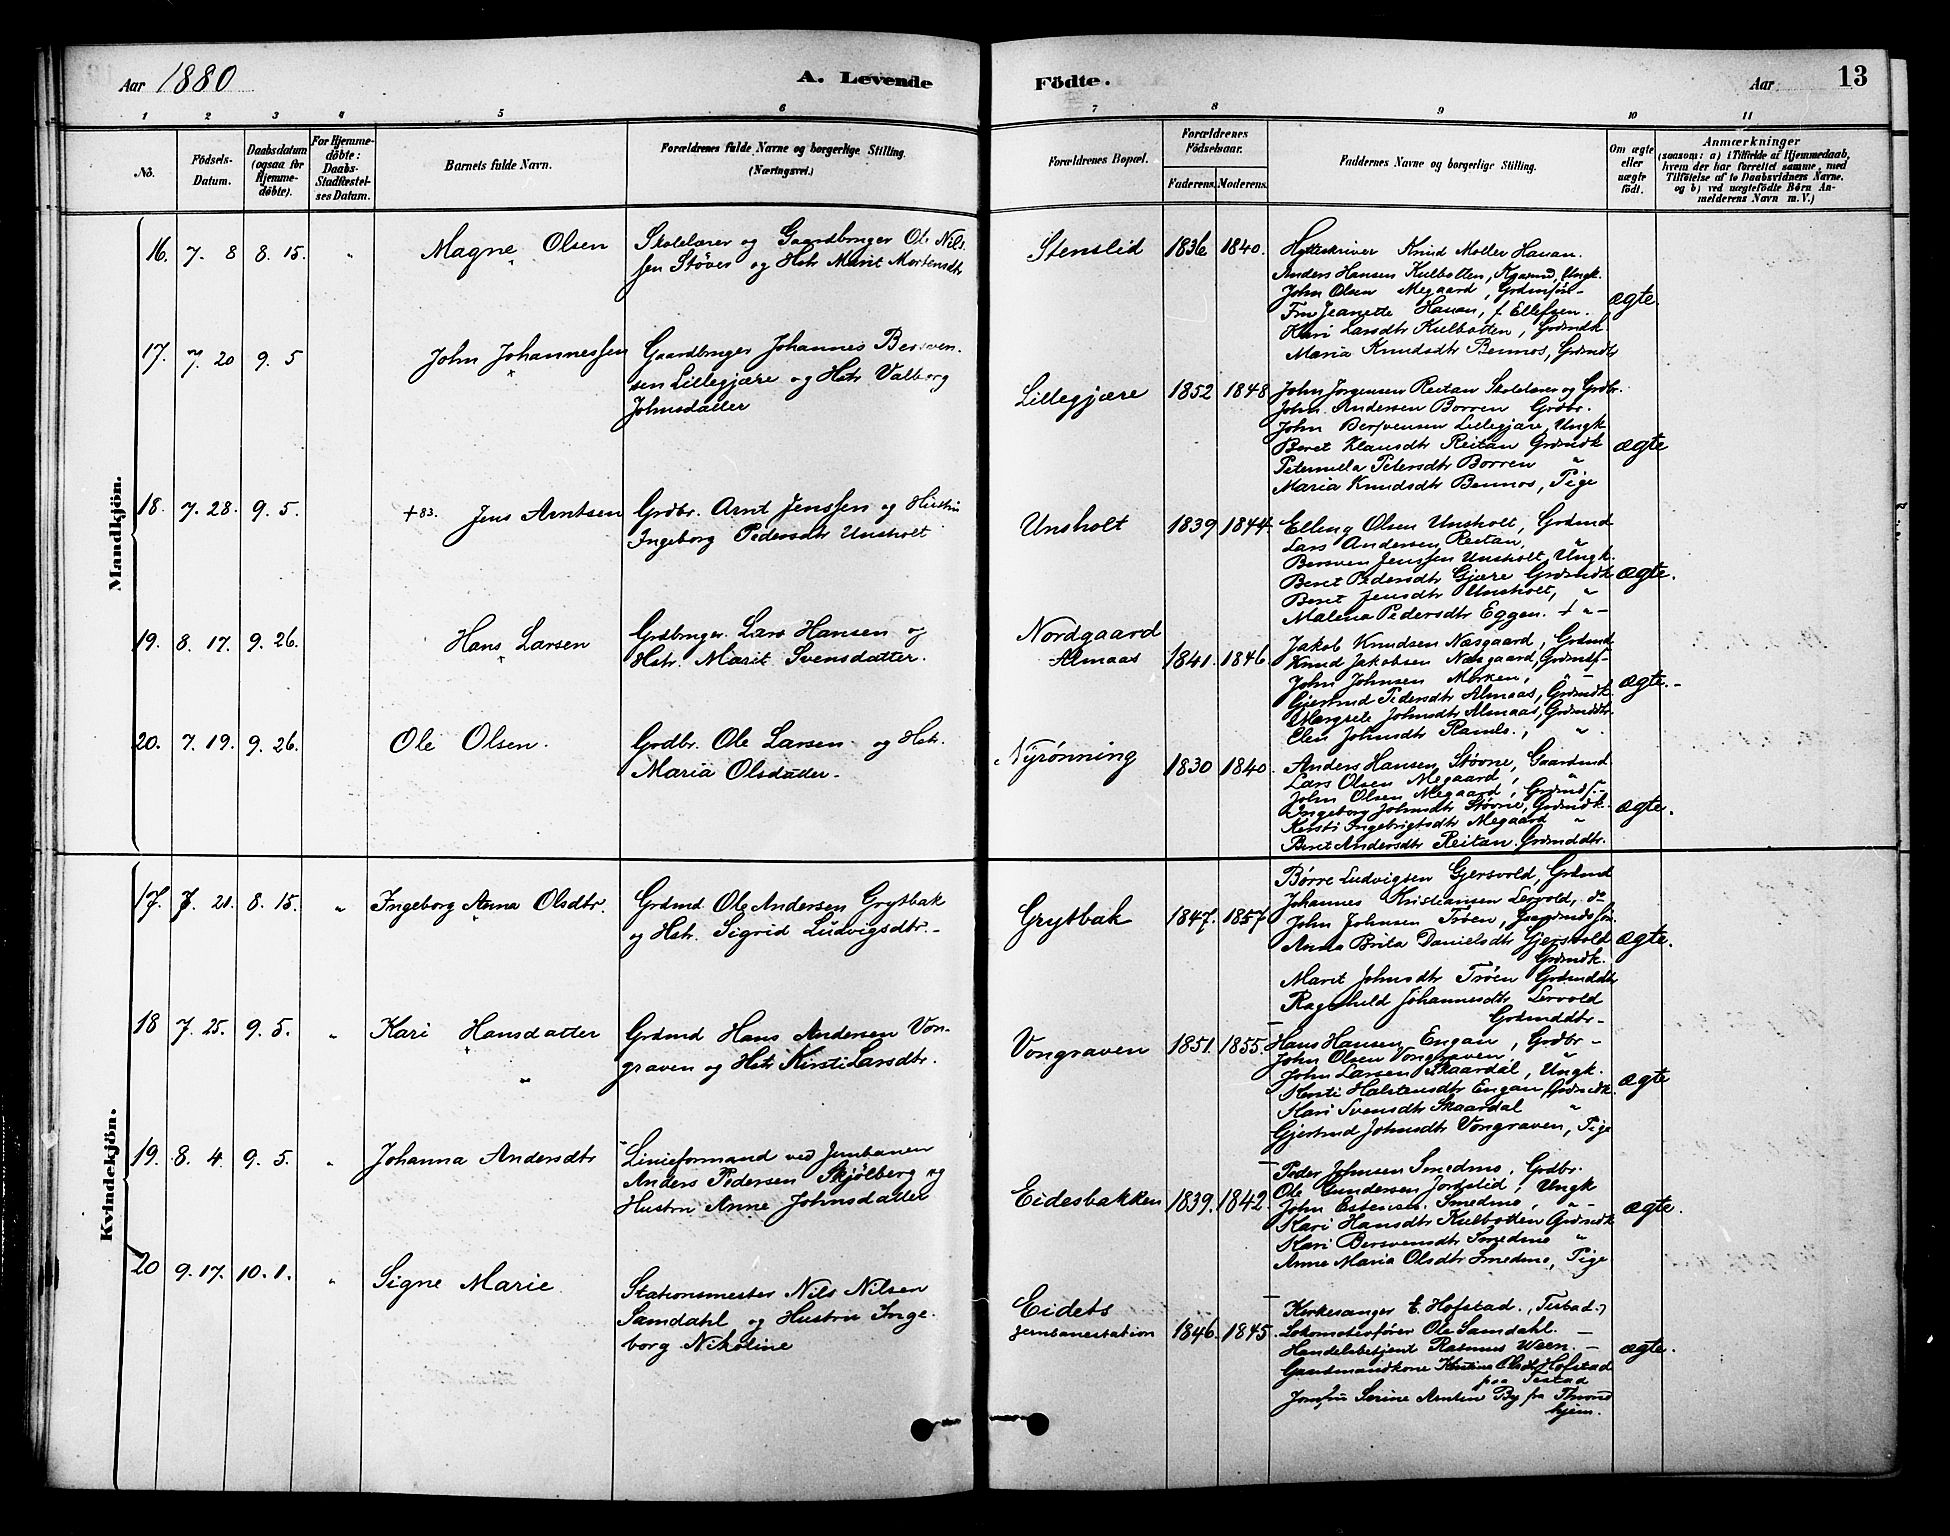 Aar 1880
A. Levende
Födte.
Aar
13
1 2 3 4 5 6 7 8 9 10 11
No.
Födsels-
Datum.
Daabsdatum
(ogsaa for
Hjemme-
döbte).
For Hjemme-
döbte:
Daabs-
Stadfæstel-
ses Datum.
Barnets fulde Navn.
Forældrenes fulde Navne og borgerlige Stilling.
(Næringsvei.)
Forældrenes Bopæl.
Forældrenes
Födselsaar.
Faderens. Moderens.
Faddernes Navne og borgerlige Stilling.
Om ægte
eller
uægte
födt.
Anmærkninger
(saasom: a) i Tilfælde af Hjemmedaab,
hvem der har forrettet samme, med
Tilföielse af to Daabsvidners Navne,
og b) ved uægtefödte Börn An-
melderens Navn m. V.)
Mandkjön.
16. 7. 8 8. 15. " Magne Olsen
Skolelærer og Gaardbruger Ole Nils-
sen Støver og Hstr Marit Mortensdtr
Stenslid 1836 1840.
Hytteskriver Knud Møller Hauan.
Anders Hansen Kulbotten, Ungk.
John Olsen Megaard, Grdmsøn-
Fru Jeanette Hauan, f. Ellefsen.
Kari Larsdtr Kulbotten, Grdmdk.
Maria Knudsdtr Bennos, Grdmdtr
ægte.
17. 7 20 9. 5 John Johannessen
Gaardbruger Johannes Bersven-
sen Lillegjære og Hstr Valborg
Johnsdatter
Lillegjære 1852 1848
John Jørgensen Reitan Skolelærer og Grdbr.
John Andersen Borren Grdbr.
John Bersvensen Lillegjære, Ungk
Beret Klausdtr Reitan Grdmdk
Peternella Petersdtr Borren "
Maria Knudsdtr Bennos, Pige
ægte
18. 7. 28. 9. 5. +83. Jens Arntsen
Grdbr. Arnt Jenssen og Hustru
Ingeborg Pedersdtr Unsholt
Unsholt 1839 1844.
Elling Olsen Unsholt, Grdmd
Lars Andersen Reitan, "
Bersven Jenssen Unsholt, Ungk.
Beret Pedersdtr Gjære Grdmdk
Beret Jensdtr Unsholt, "
Malena Pedersdtr Eggen. + "-
ægte.
19. 8. 17. 9. 26. Hans Larsen
Grdbruger. Lars Hansen og
Hstr. Marit Svensdatter.
Nordgaard
Almaas 1841. 1846.
Jakob Knudsen Næsgaard, Grdmd
Knud Jakobsen Næsgaard, Grdmds-
John Johnsen Mørken, " -
Gjertrud Pedersdtr Almaas, Grdmdk.
Margrete Johnsdtr Almaas, Grdmddtr.
Elen Johnsdtr Ramlo, "
ægte.-
20. 7. 19. 9. 26. Ole Olsen.
Grdbr. Ole Larsen og Hstr.
Maria Olsdatter.
Nyrønning 1830 1840.
Anders Hansen Støvne, Gaardmd
Lars Olsen Megaard, "
John Olsen Megaard, Grdmds.-
Ingeborg Johnsdtr Støvne, Grdmdk.
Kersti Ingebrigtsdtr Megaard "
Beret Andersdtr Reitan. Grdmddtr.
ægte.
Kvindekjön.
17. 7. 21. 8. 15. " Ingeborg Anna Olsdtr.
Grdmd Ole Andersen Grytbak
og Hstr. Sigrid Ludvigsdtr.-
Grytbak 1847. 1857
Børre Ludvigsen Gjersvold, Grdmd
Johannes Kristiansen Lervold, do
John Johnsen Trøen, Gaardmdssøn.
Anna Brita Danielsdtr Gjersvold
Grdmdk.
Marit Johnsdtr Trøen Grdmddtr
Ragnhild Johannesdtr Lervold
Grdmddtr-
ægte.
18 7. 25. 9. 5. " Kari Hansdatter
Grdmd Hans Andersen Von-
graven og Hstr Kirsti Larsdtr.
Vongraven 1851. 1855.
Hans Hansen Engan, Grdbr-
John Olsen Vongraven, "
John Larsen Skaardal, Ungk.
Kersti Halstensdtr Engan, Grdmdk.
Kari Svensdtr Skaardal "
Gjertrud Johnsdtr Vongraven, Pige
ægte
19. 8. 4. 9. 5. " Johanna Andersdtr
Linieformand ved Jernbanen
Anders Pedersen Skjølberg og
Hustru Anne Johnsdatter
Eidesbakken 1839. 1842.
Peder Johnsen Smedmo, Grdbr.
Ole Gundersen Jordslid, Ungk
John Estensen Smedmo, " -
Kari Hansdtr Kulbotten Grdmdk
Kari Bersvensdtr Smedmo "
Anne Maria Olsdtr Smedmo, Pige
ægte.
20 9. 17. 10. 1. " Signe Marie
Stationsmester Nils Nilsen
Samdahl og Hustru Inge-
borg Nikoline
Eidets
jernbanestation 1846. 1845.
Kirkesanger E. Hofstad. (Testad.)
Lokomotivfører Ole Samdahl. -
Handelsbetjent Rasmus Ween. -
Gaardmandkone Kristina Olsdtr Hofstad
paa Testad
Jomfru Serine Arntsen By fra Thrond
hjem.
ægte.